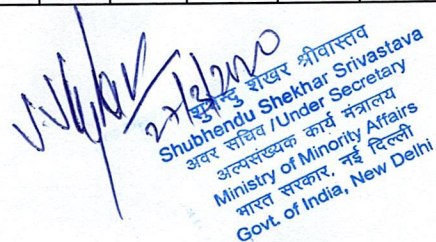 27/3/2020
शुभेन्दु शेखर श्रीवास्तव
Shubhendu Shekhar Srivastava
अवर सचिव / Under Secretary
अल्पसंख्यक कार्य मंत्रालय
Ministry of Minority Affairs
भारत सरकार, नई दिल्ली
Govt. of India, New Delhi